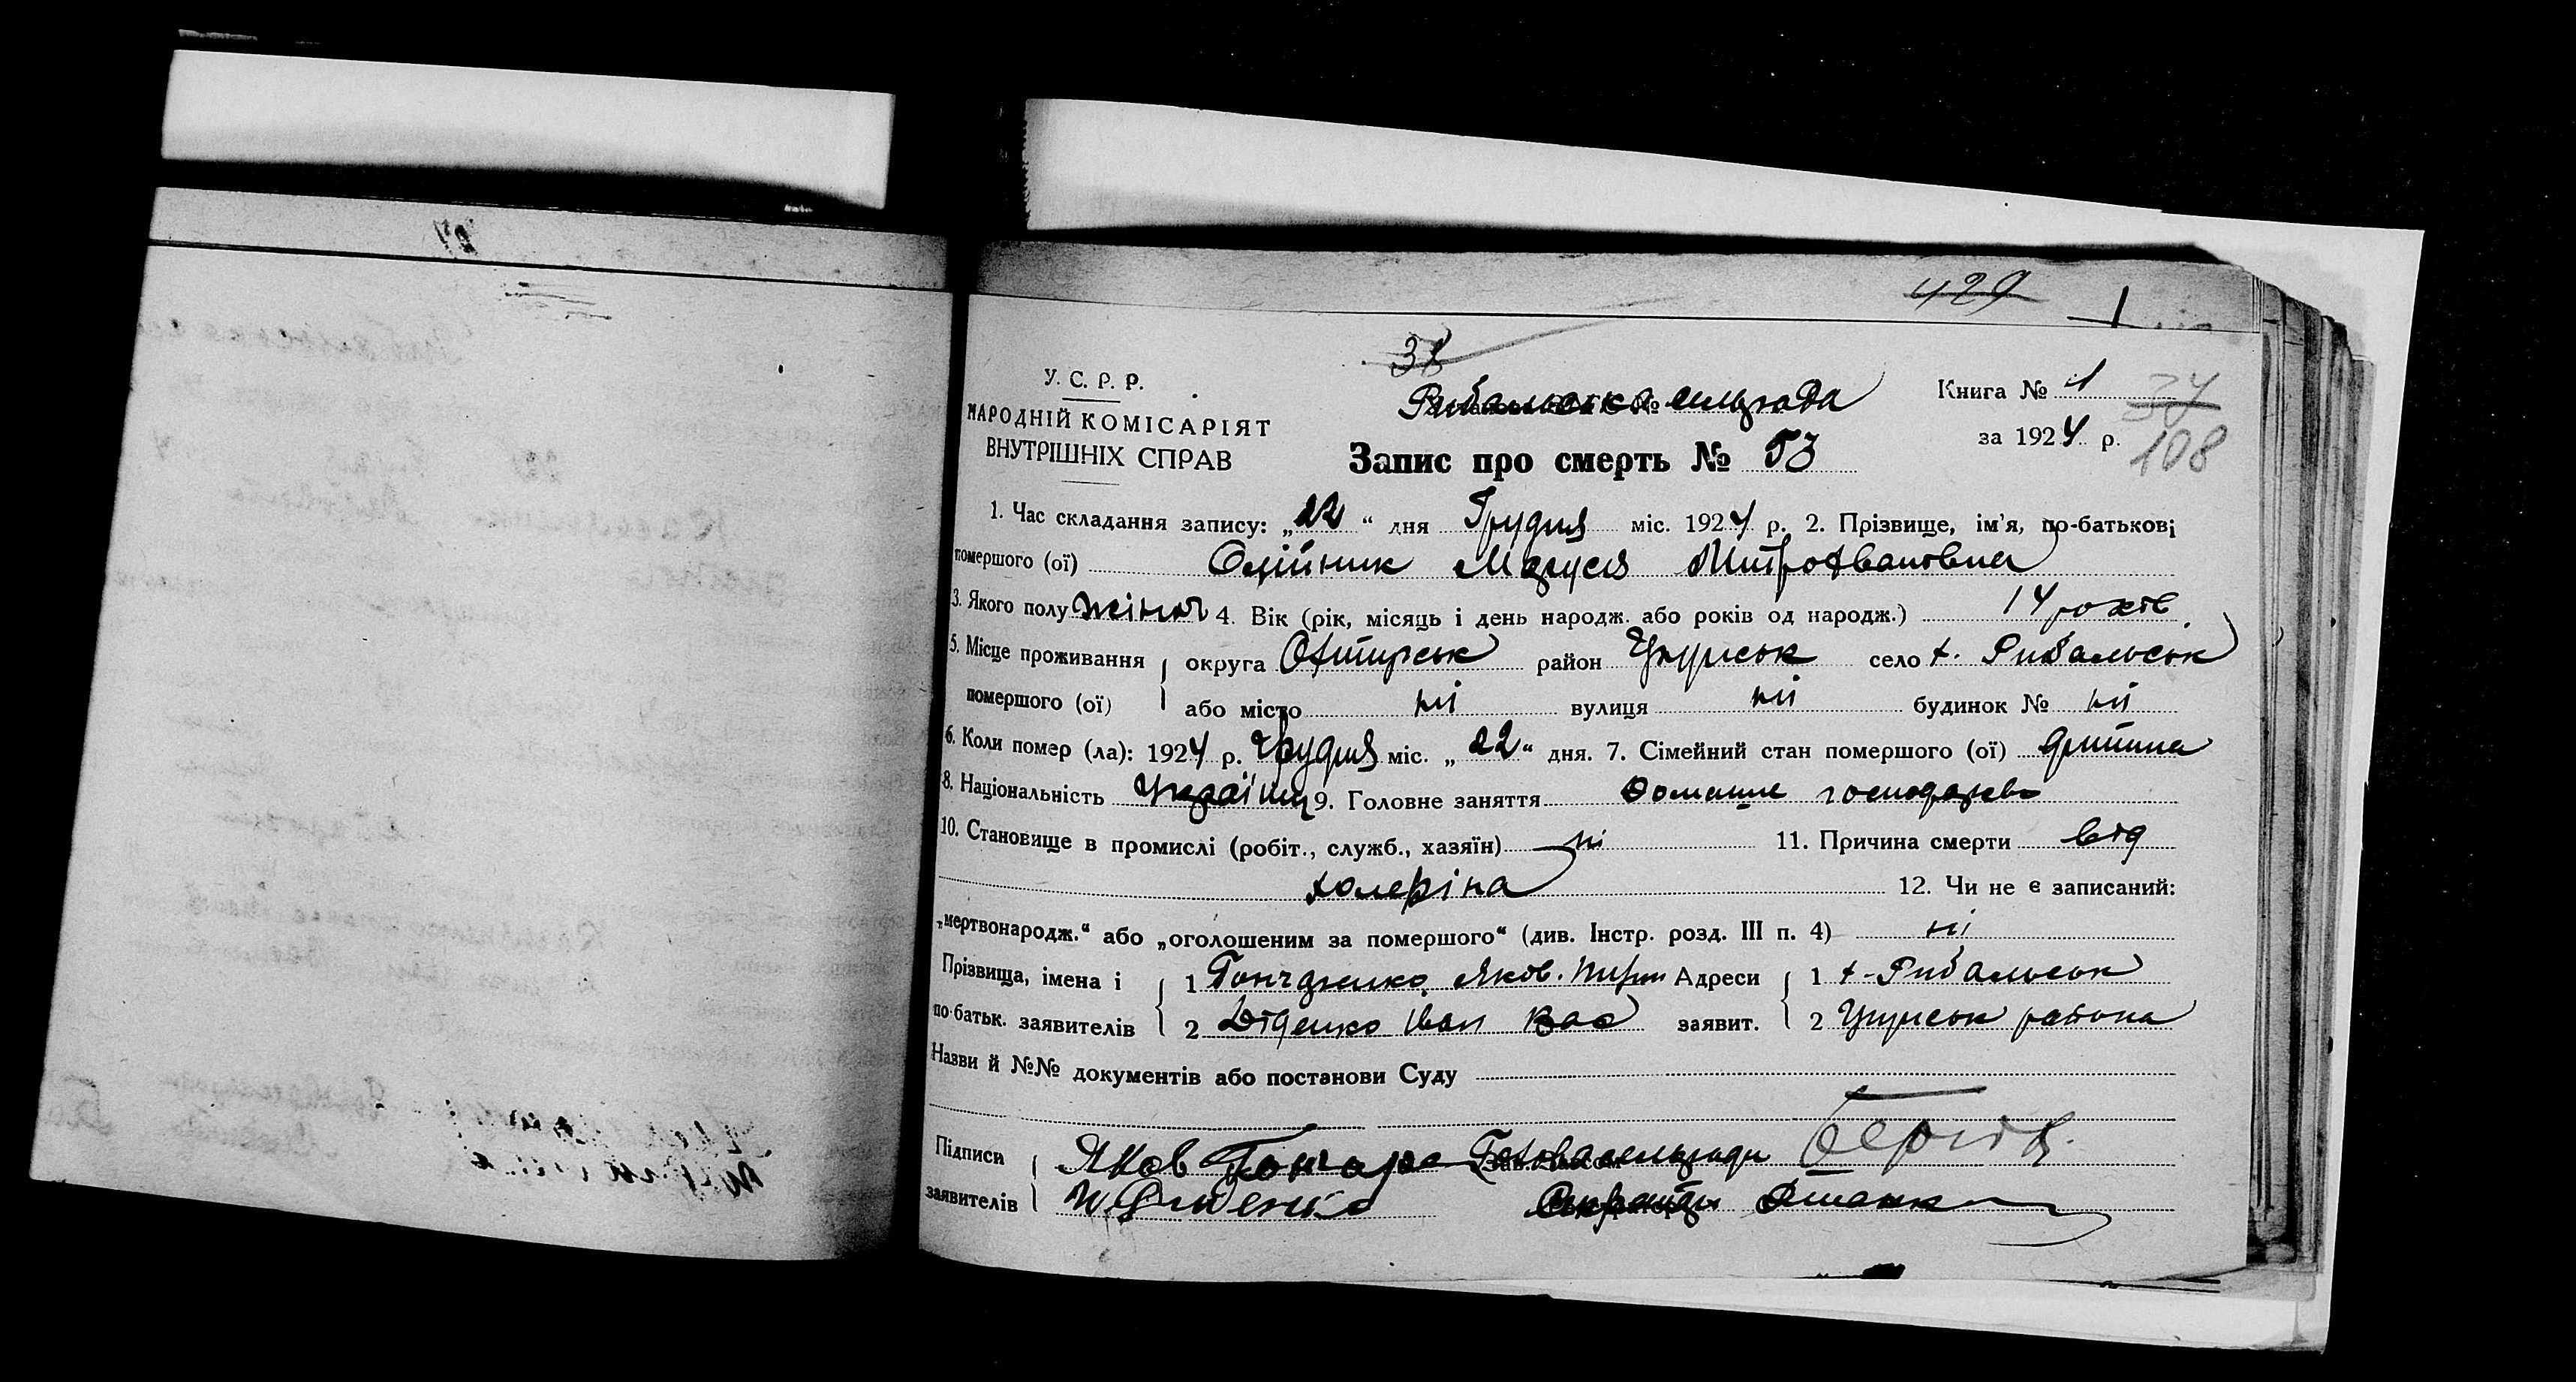 429
1
38
У. С. Р. Р.
НАРОДНІЙ КОМІСАРІЯТ
ВНУТРІШНІХ СПРАВ
Рибальська сельрада
Книга № 1
34
за 1924 р.
108
Запис про смерть № 53
1. Час складання запису: „22“ дня Грудня міс. 1924 р. 2. Прізвище, ім'я, по-батькові
помершого (ої) Олійник Маруся Митрофановна
3. Якого полу жіноч 4. Вік (рік, місяць і день народж. або років од народж.) 14 років
5. Місце проживання округа Охтирськ район село х. Рибальськ
помершого (ої) або місто ні вулиця ні будинок № ні
6. Коли помер (ла): 1924 р. Грудня міс. „22“ дня. 7. Сімейний стан помершого (ої) дитина
8. Національність Українц 9. Головне заняття Домашне господарство
10. Становище в промислі (робіт., служб., хазяїн) ні 11. Причина смерти від
холеріна 12. Чи не є записаний:
„мертвонародж.“ або „оголошеним за помершого“ (див. Інстр. розд. III п. 4) ні
Прізвища, імена і 1 Гончаренко Яков. Адреси 1 х-Рибальськ
по-батьк. заявителів 2 Діденко Іван Вас заявит. 2 района
Назви й №№ документів або постанови Суду
Підписи Яков Гончаре Голова сельради
заявителів Секретарь